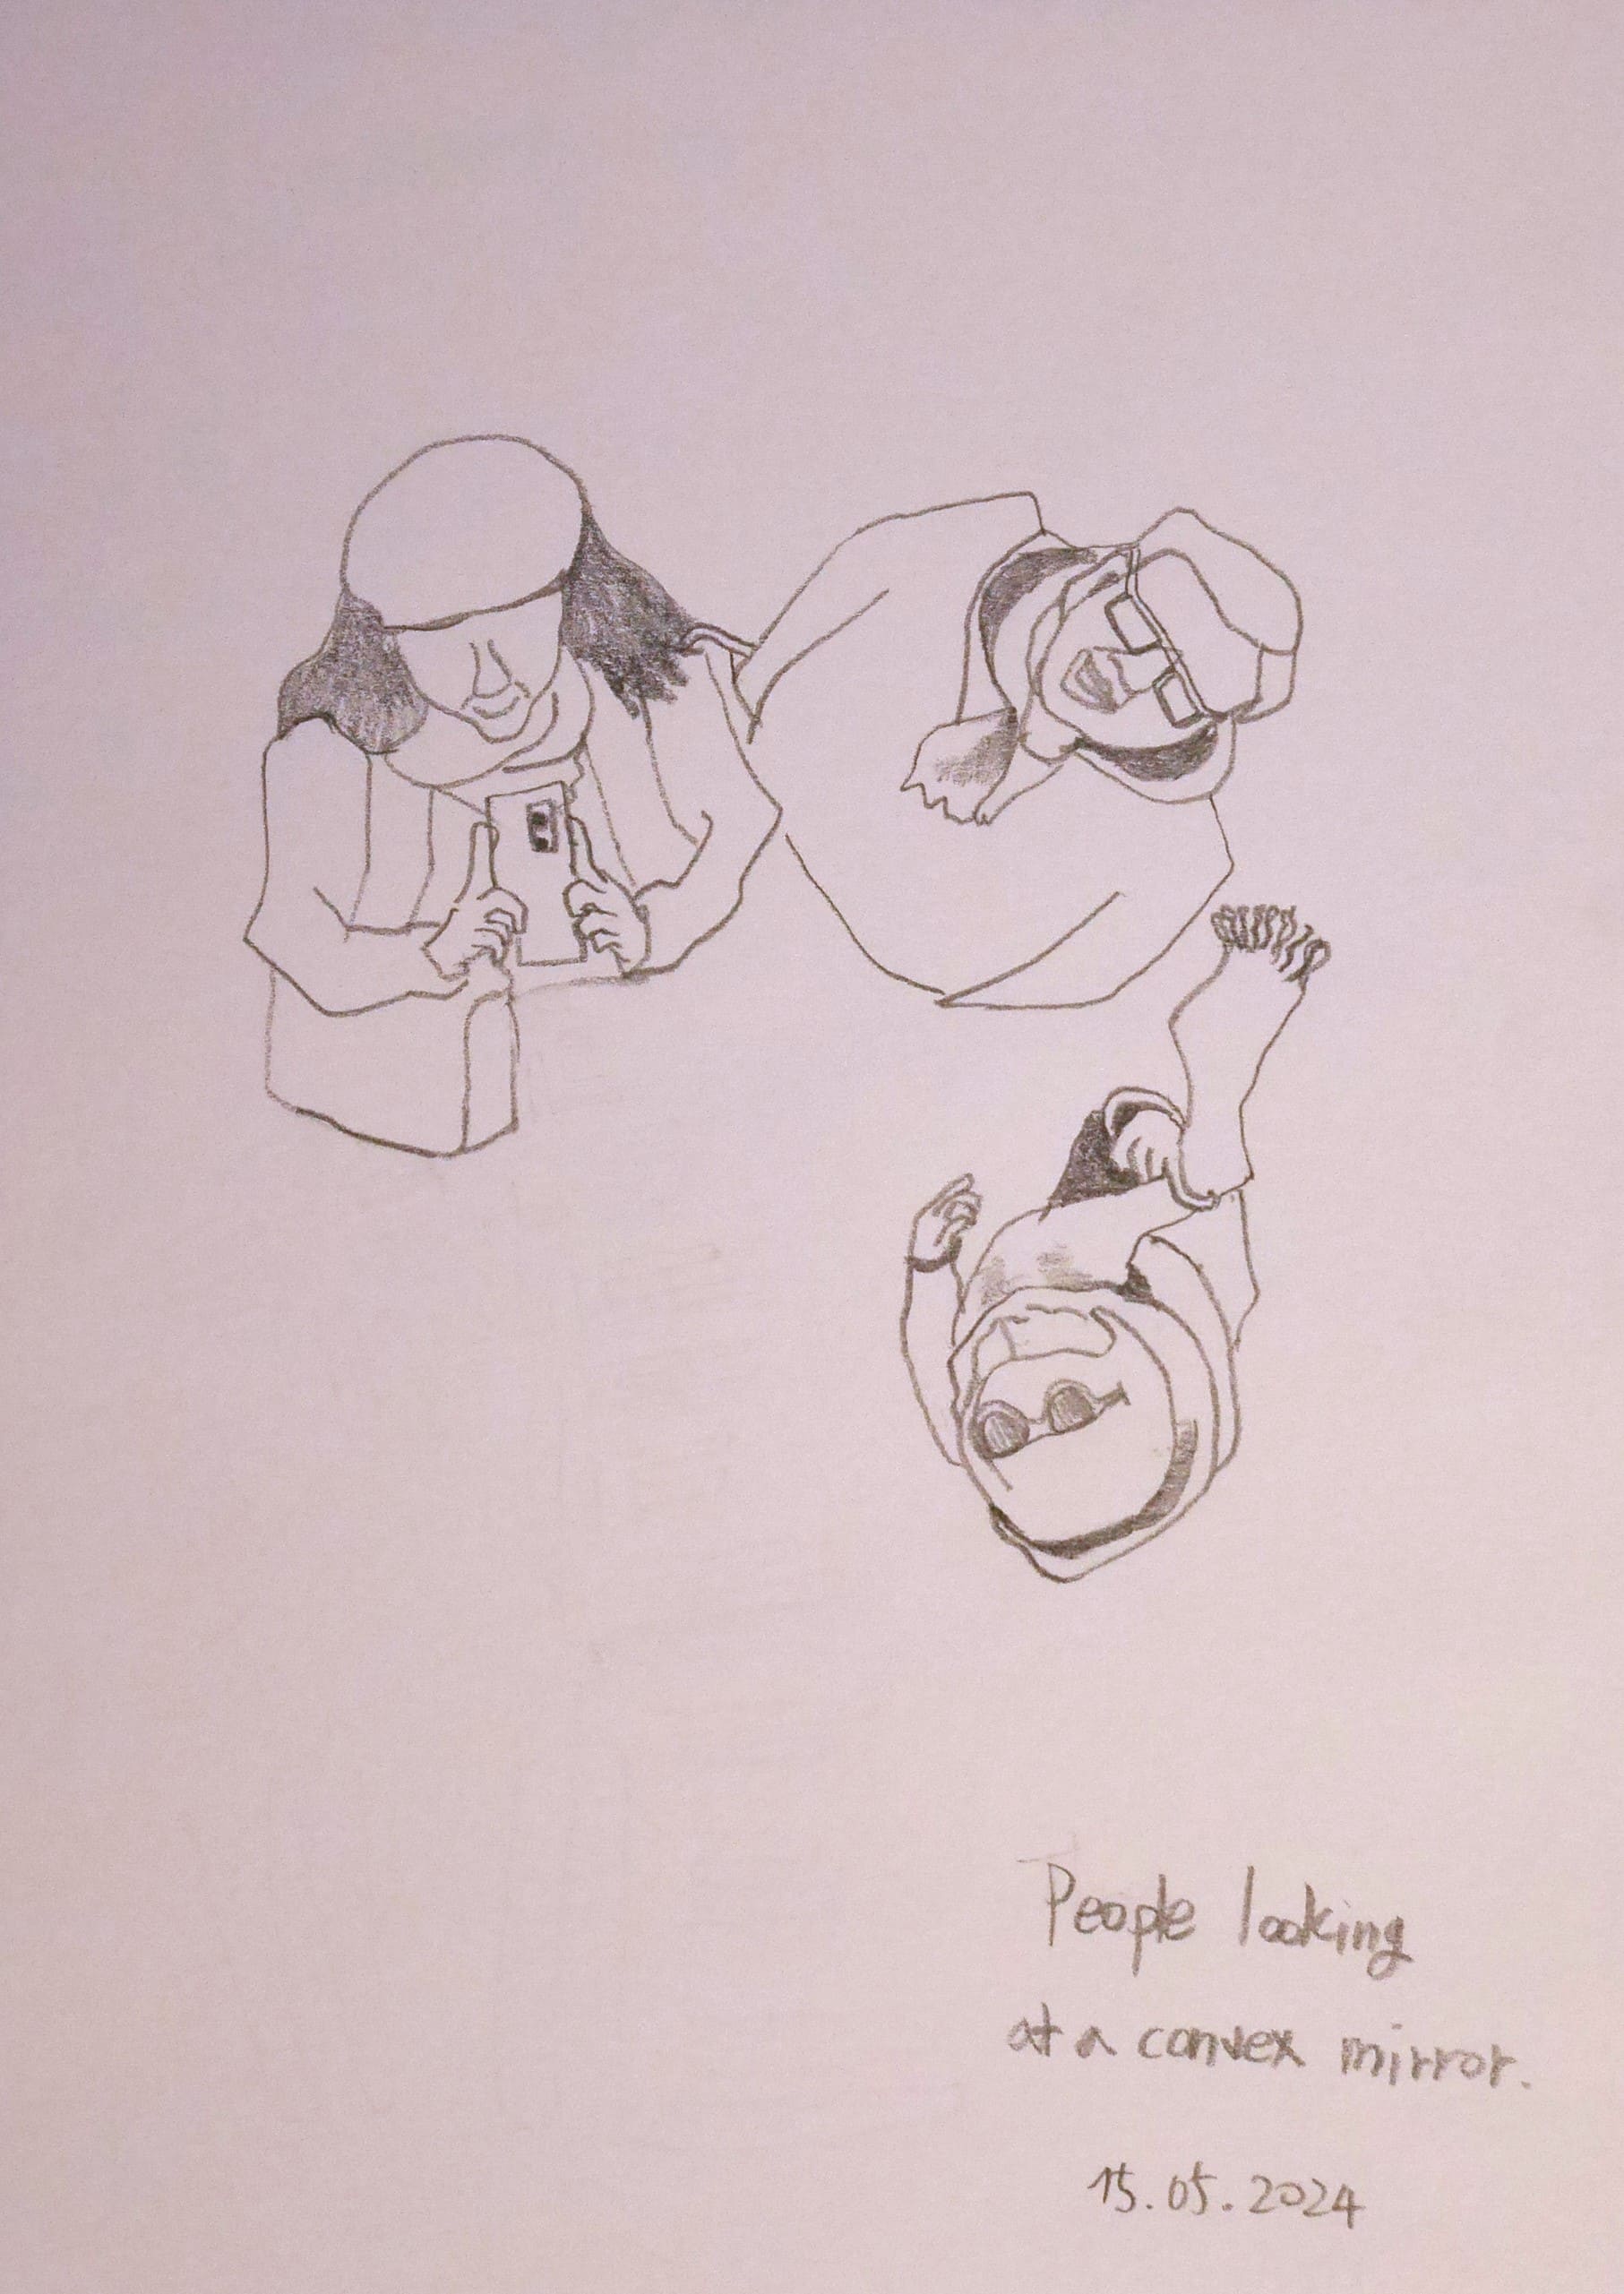 People looking
at a convex mirror.
15.05.2024